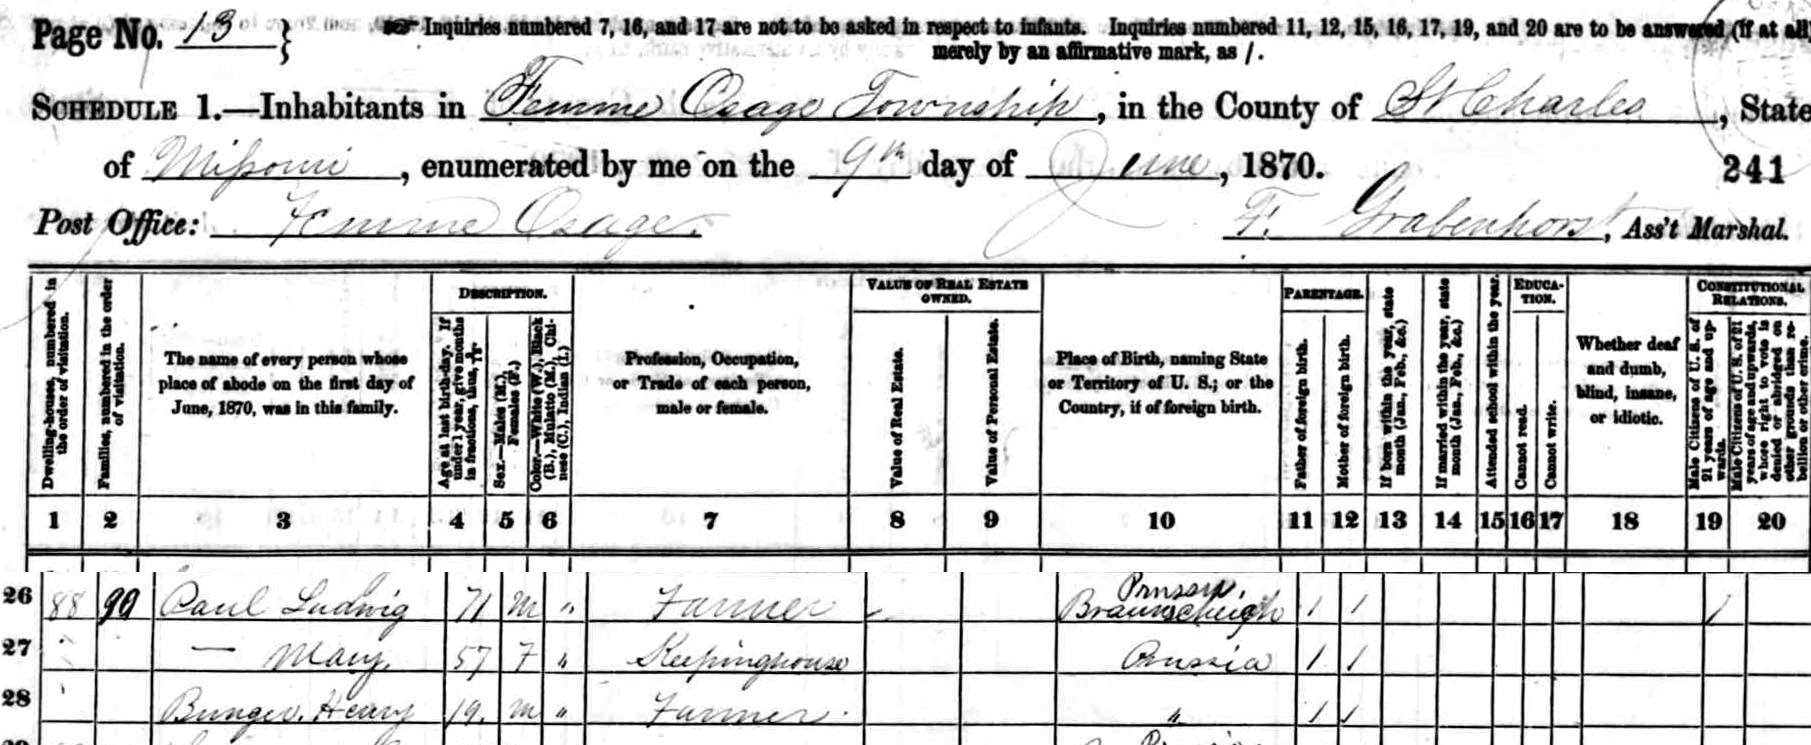 Page No. 13 }
Inquiries numbered 7, 16, and 17 are not to be asked in respect to infants. Inquiries numbered 11, 12, 15, 16, 17, 19, and 20 are to be answered (if at all)
merely by an affirmative mark, as /.
SCHEDULE 1.—Inhabitants in Femme Osage Township, in the County of St Charles, State
of Missouri, enumerated by me on the 9th day of June, 1870.
241
Post Office: Femme Osage
F. Grabenhorst, Ass't Marshal.
Dwelling-houses, numbered in the order of visitation.
Families, numbered in the order of visitation.
The name of every person whose
place of abode on the first day of
June, 1870, was in this family.
DESCRIPTION.
Age at last birth-day. If under 1 year, give months in fractions, thus,
Sex.—Males (M.), Females (F.)
Color.—White (W.), Black (B.), Mulatto (M.), Chinese (C.), Indian (I.)
Profession, Occupation,
or Trade of each person,
male or female.
VALUE OF REAL ESTATE
OWNED.
Value of Real Estate.
Value of Personal Estate.
Place of Birth, naming State
or Territory of U. S.; or the
Country, if of foreign birth.
PARENTAGE.
Father of foreign birth.
Mother of foreign birth.
If born within the year, state month (Jan., Feb., &c.)
If married within the year, state month (Jan., Feb., &c.)
Attended school within the year.
EDUCA-
TION.
Cannot read.
Cannot write.
Whether deaf
and dumb,
blind, insane,
or idiotic.
CONSTITUTIONAL
RELATIONS.
Male Citizens of U. S. of 21 years of age and upwards.
Male Citizens of U. S. of 21 years of age and upwards, whose right to vote is denied or abridged on other grounds than rebellion or other crime.
1 2 3 4 5 6 7 8 9 10 11 12 13 14 15 16 17 18 19 20
26 88 99 Paul Ludwig 71 M " Farmer Prussia. Braunscheigh 1 1 1
27 — Mary. 57 F " Keepinghouse Prussia 1 1
28 Bunger. Henry 19. M " Farmer. " 1 1